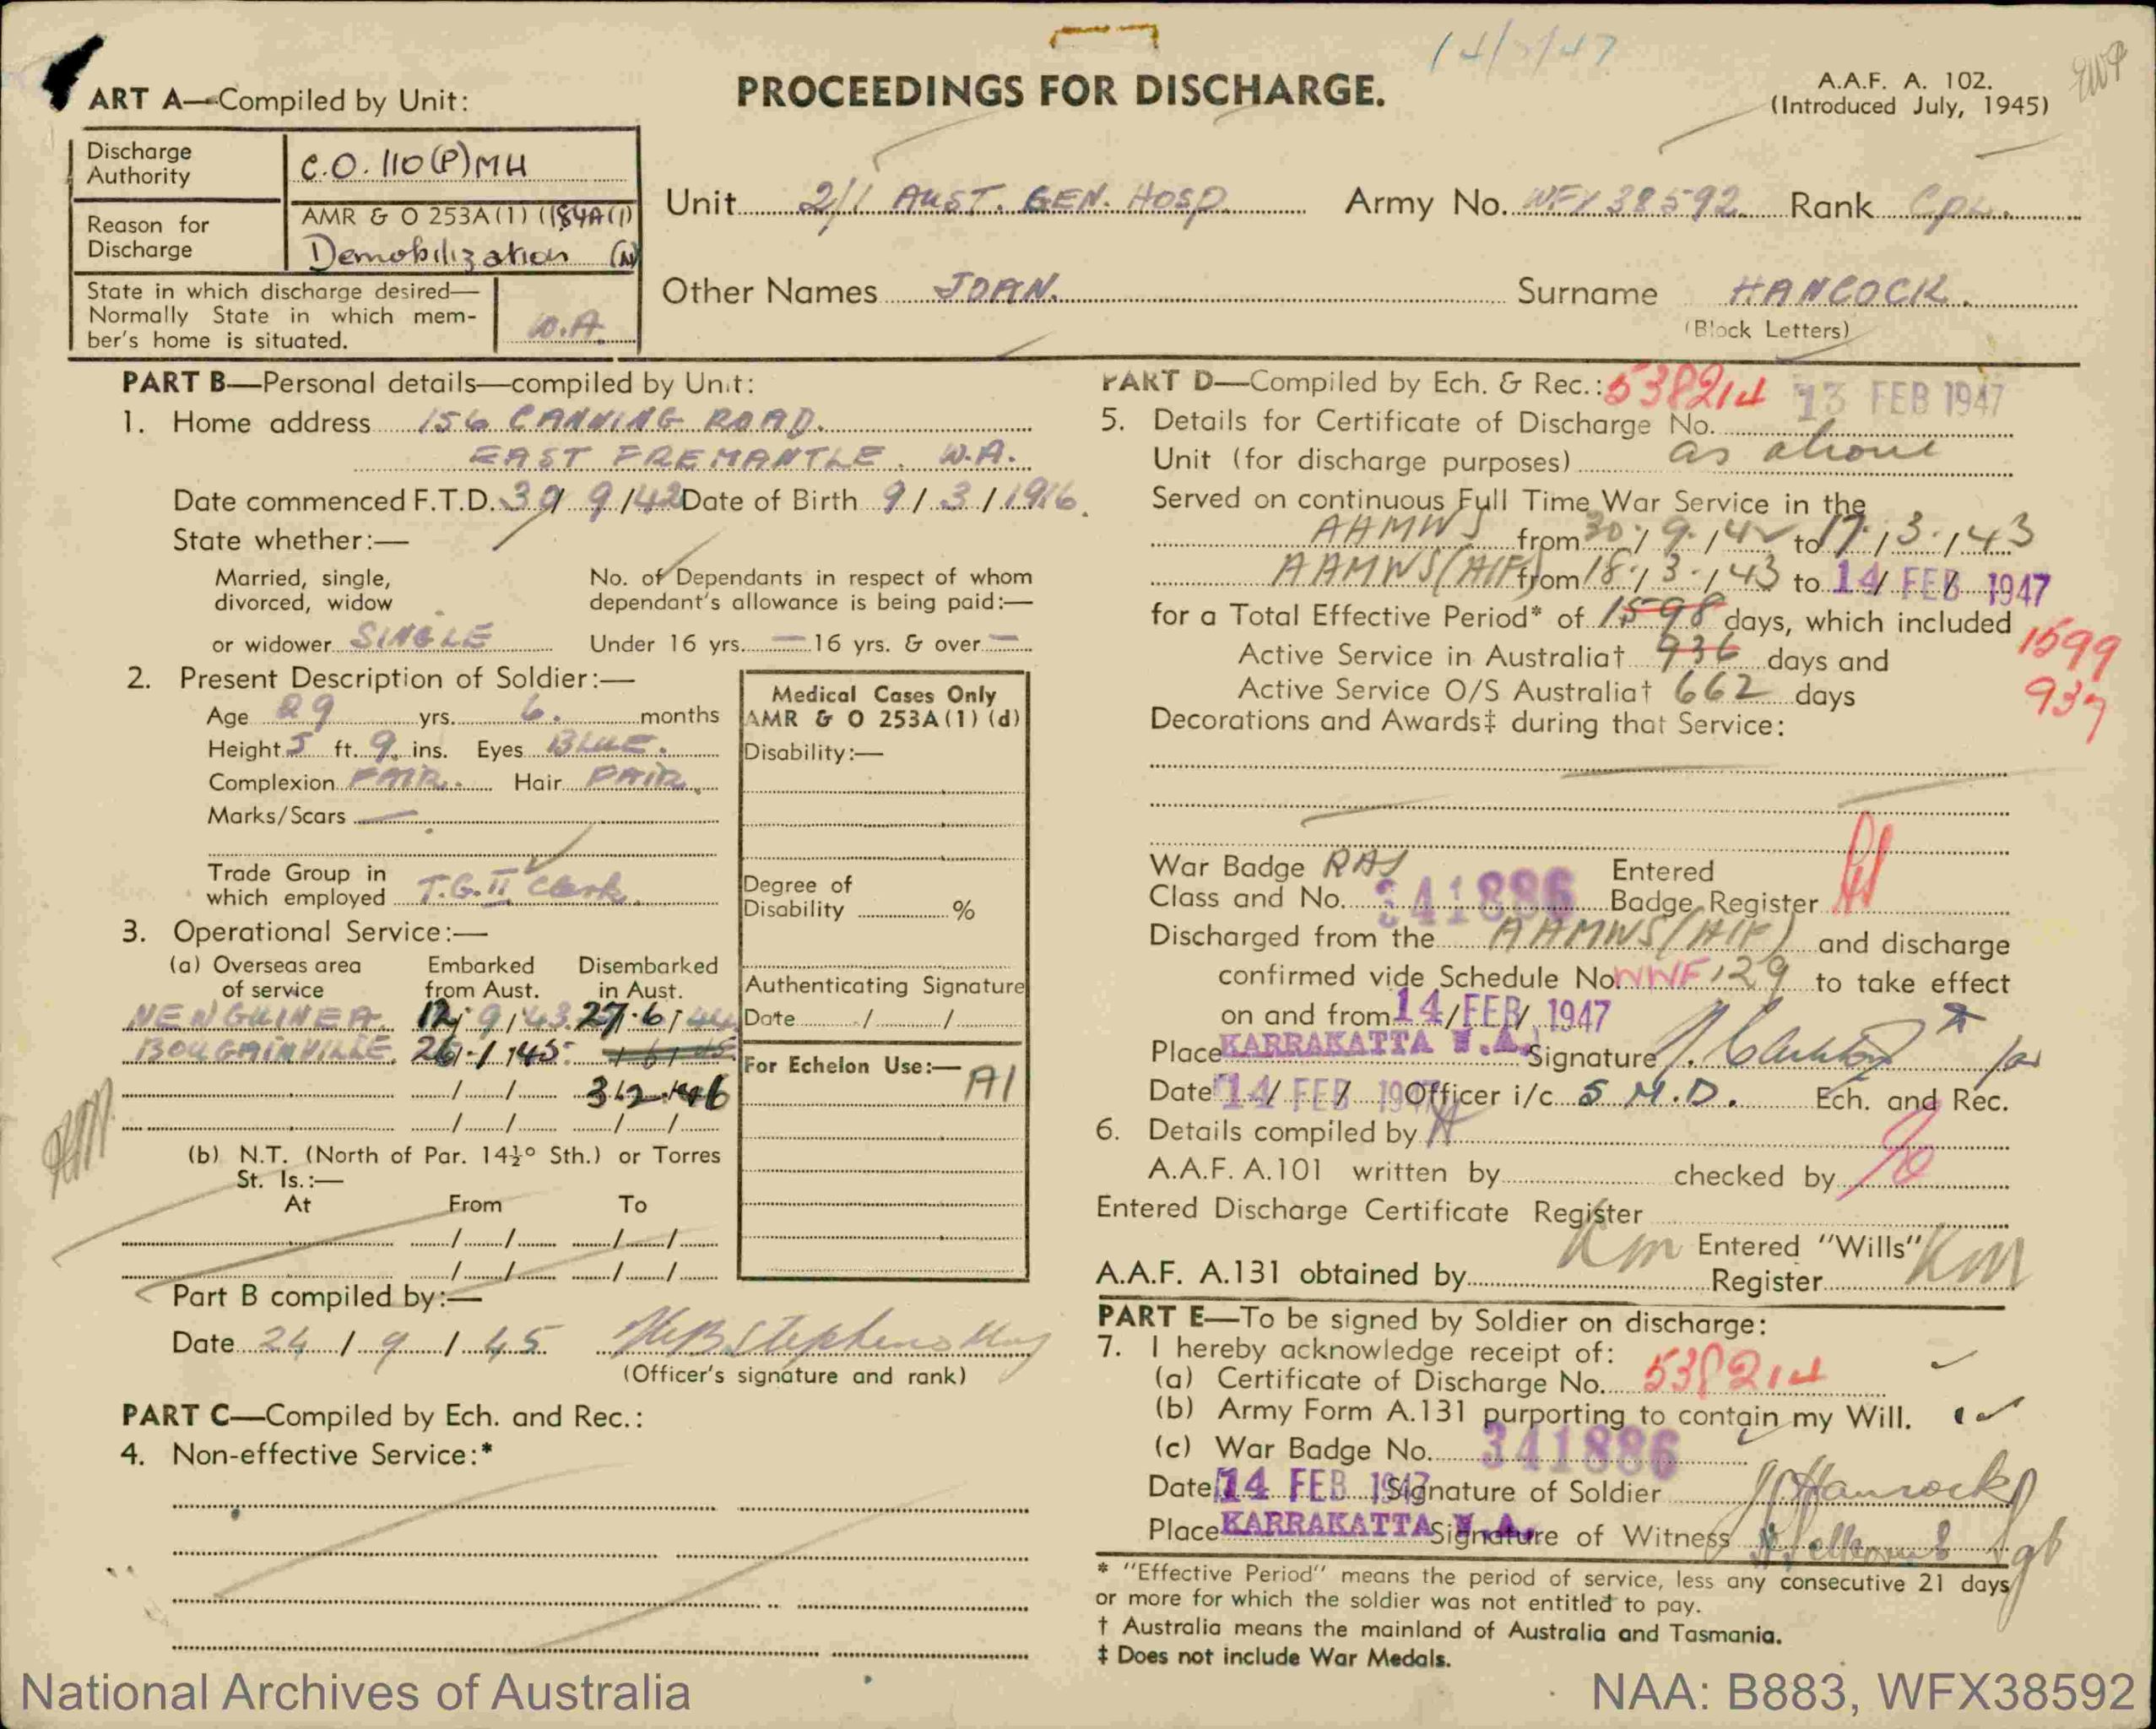 14/2/47
ART A—Compiled by Unit:
PROCEEDINGS FOR DISCHARGE.
A.A.F. A. 102.
(Introduced July, 1945)
Discharge Authority C.O. 110(P)MH
Reason for Discharge AMR & O 253A(1) (184A(1)
Demobilization (N)
State in which discharge desired—
Normally State in which mem-
ber's home is situated. W.A.
Unit 2/1 AUST. GEN. HOSP. Army No. WFX38592 Rank Cpl.
Other Names JOAN. Surname HANCOCK.
(Block Letters)
PART B—Personal details—compiled by Unit:
1. Home address 156 CANNING ROAD.
EAST FREMANTLE. W.A.
Date commenced F.T.D. 30/9/42 Date of Birth 9/3/1916.
State whether:—
Married, single,
divorced, widow
or widower SINGLE
No. of Dependants in respect of whom
dependant's allowance is being paid:—
Under 16 yrs. — 16 yrs. & over —
2. Present Description of Soldier:—
Age 29 yrs. 6. months
Height 5 ft. 9 ins. Eyes BLUE.
Complexion FAIR. Hair FAIR.
Marks/Scars —
Trade Group in
which employed T.G.II Clerk.
Medical Cases Only
AMR & O 253A(1) (d)
Disability:—
Degree of
Disability %
Authenticating Signature
Date / /
For Echelon Use:— A1
3. Operational Service:—
(a) Overseas area of service
Embarked from Aust.
Disembarked in Aust.
NEW GUINEA. 12/9/43. 27.6/44
BOUGAINVILLE. 26/1/45
/ / 3/2.46
/ / / /
(b) N.T. (North of Par. 14½° Sth.) or Torres
St. Is.:—
At From To
/ / / /
/ / / /
Part B compiled by:—
Date 24/9/45 Stephens
(Officer's signature and rank)
PART C—Compiled by Ech. and Rec.:
4. Non-effective Service:*
PART D—Compiled by Ech. & Rec.: 538214 13 FEB 1947
5. Details for Certificate of Discharge No.
Unit (for discharge purposes) as above
Served on continuous Full Time War Service in the
AAMWS from 30/9/42 to 17/3/43
AAMWS(AIF) from 18/3/43 to 14/ FEB/ 1947
for a Total Effective Period* of 1598 days, which included 1599
Active Service in Australia† 936 days and 937
Active Service O/S Australia† 662 days
Decorations and Awards‡ during that Service:
War Badge RAS
Class and No. 341886
Entered
Badge Register
Discharged from the AAMWS(AIF) and discharge
confirmed vide Schedule No. WWF129 to take effect
on and from 14/FEB/ 1947
Place KARRAKATTA W.A. Signature for
Date 14/ FEB/ 1947 Officer i/c 5 M.D. Ech. and Rec.
6. Details compiled by
A.A.F. A.101 written by checked by
Entered Discharge Certificate Register
A.A.F. A.131 obtained by Km Entered "Wills"
Register Km
PART E—To be signed by Soldier on discharge:
7. I hereby acknowledge receipt of:
(a) Certificate of Discharge No. 538214
(b) Army Form A.131 purporting to contain my Will.
(c) War Badge No. 341886
Date 14 FEB 1947 Signature of Soldier J Hancock
Place KARRAKATTA W.A. Signature of Witness Sgt
* "Effective Period" means the period of service, less any consecutive 21 days
or more for which the soldier was not entitled to pay.
† Australia means the mainland of Australia and Tasmania.
‡ Does not include War Medals.
National Archives of Australia
NAA: B883, WFX38592